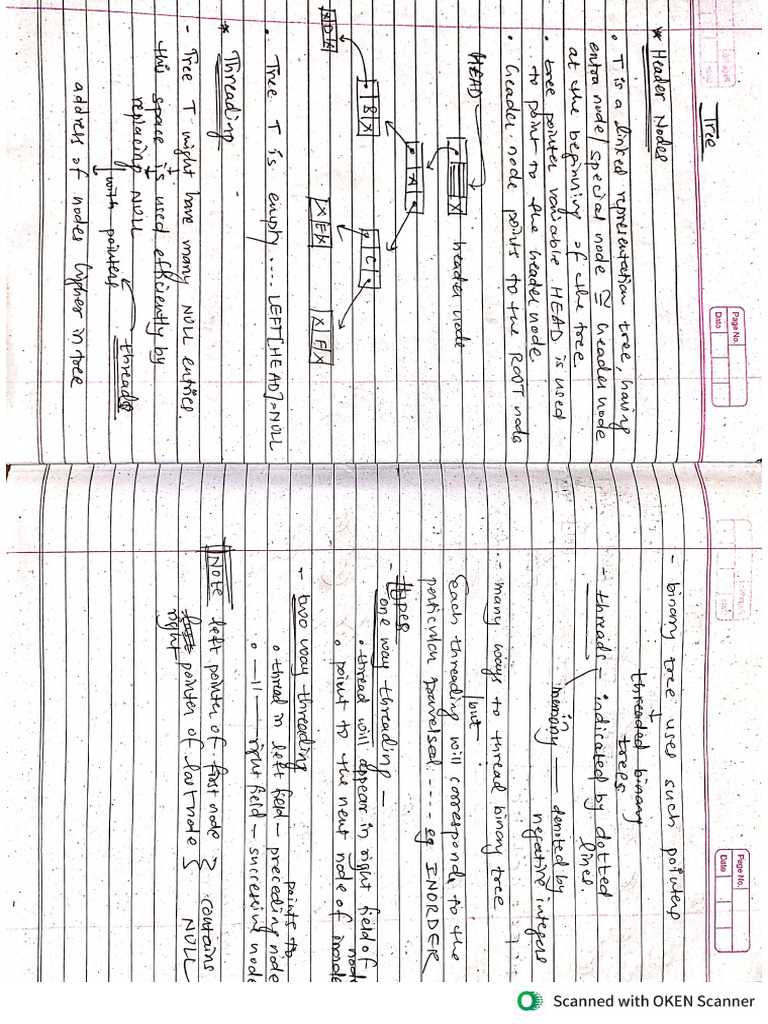 Page No.
Date
Tree
* Header Nodes
• T is a linked representation tree, having
extra node/special node ≅ header node
at the beginning of the tree.
• tree pointer variable HEAD is used
to point to the header node.
• header node points to the ROOT node
HEAD
X header node
A
B X
C
X D X
X E X
X F X
• Tree T is empty .... LEFT[HEAD]=NULL
* Threading
- Tree T might have many NULL entries.
this space is used efficiently by
replacing NULL
with pointers
threads
address of nodes higher in tree
Page No.
Date
- binary tree uses such pointers
threaded binary
trees
- threads - indicated by dotted
lines.
in
memory — denoted by
negative integers
- many ways to thread binary tree
but
each threading will corresponds to the
perticular traversal .... eg INORDER
- types
one way threading -
• thread will appear in right field of
node
• point to the next node of inorder
- two way threading
points to
• thread in left field - preceding node
• —11— right field - succeeding node
Note left pointer of first node } contains
right pointer of last node } NULL
Scanned with OKEN Scanner